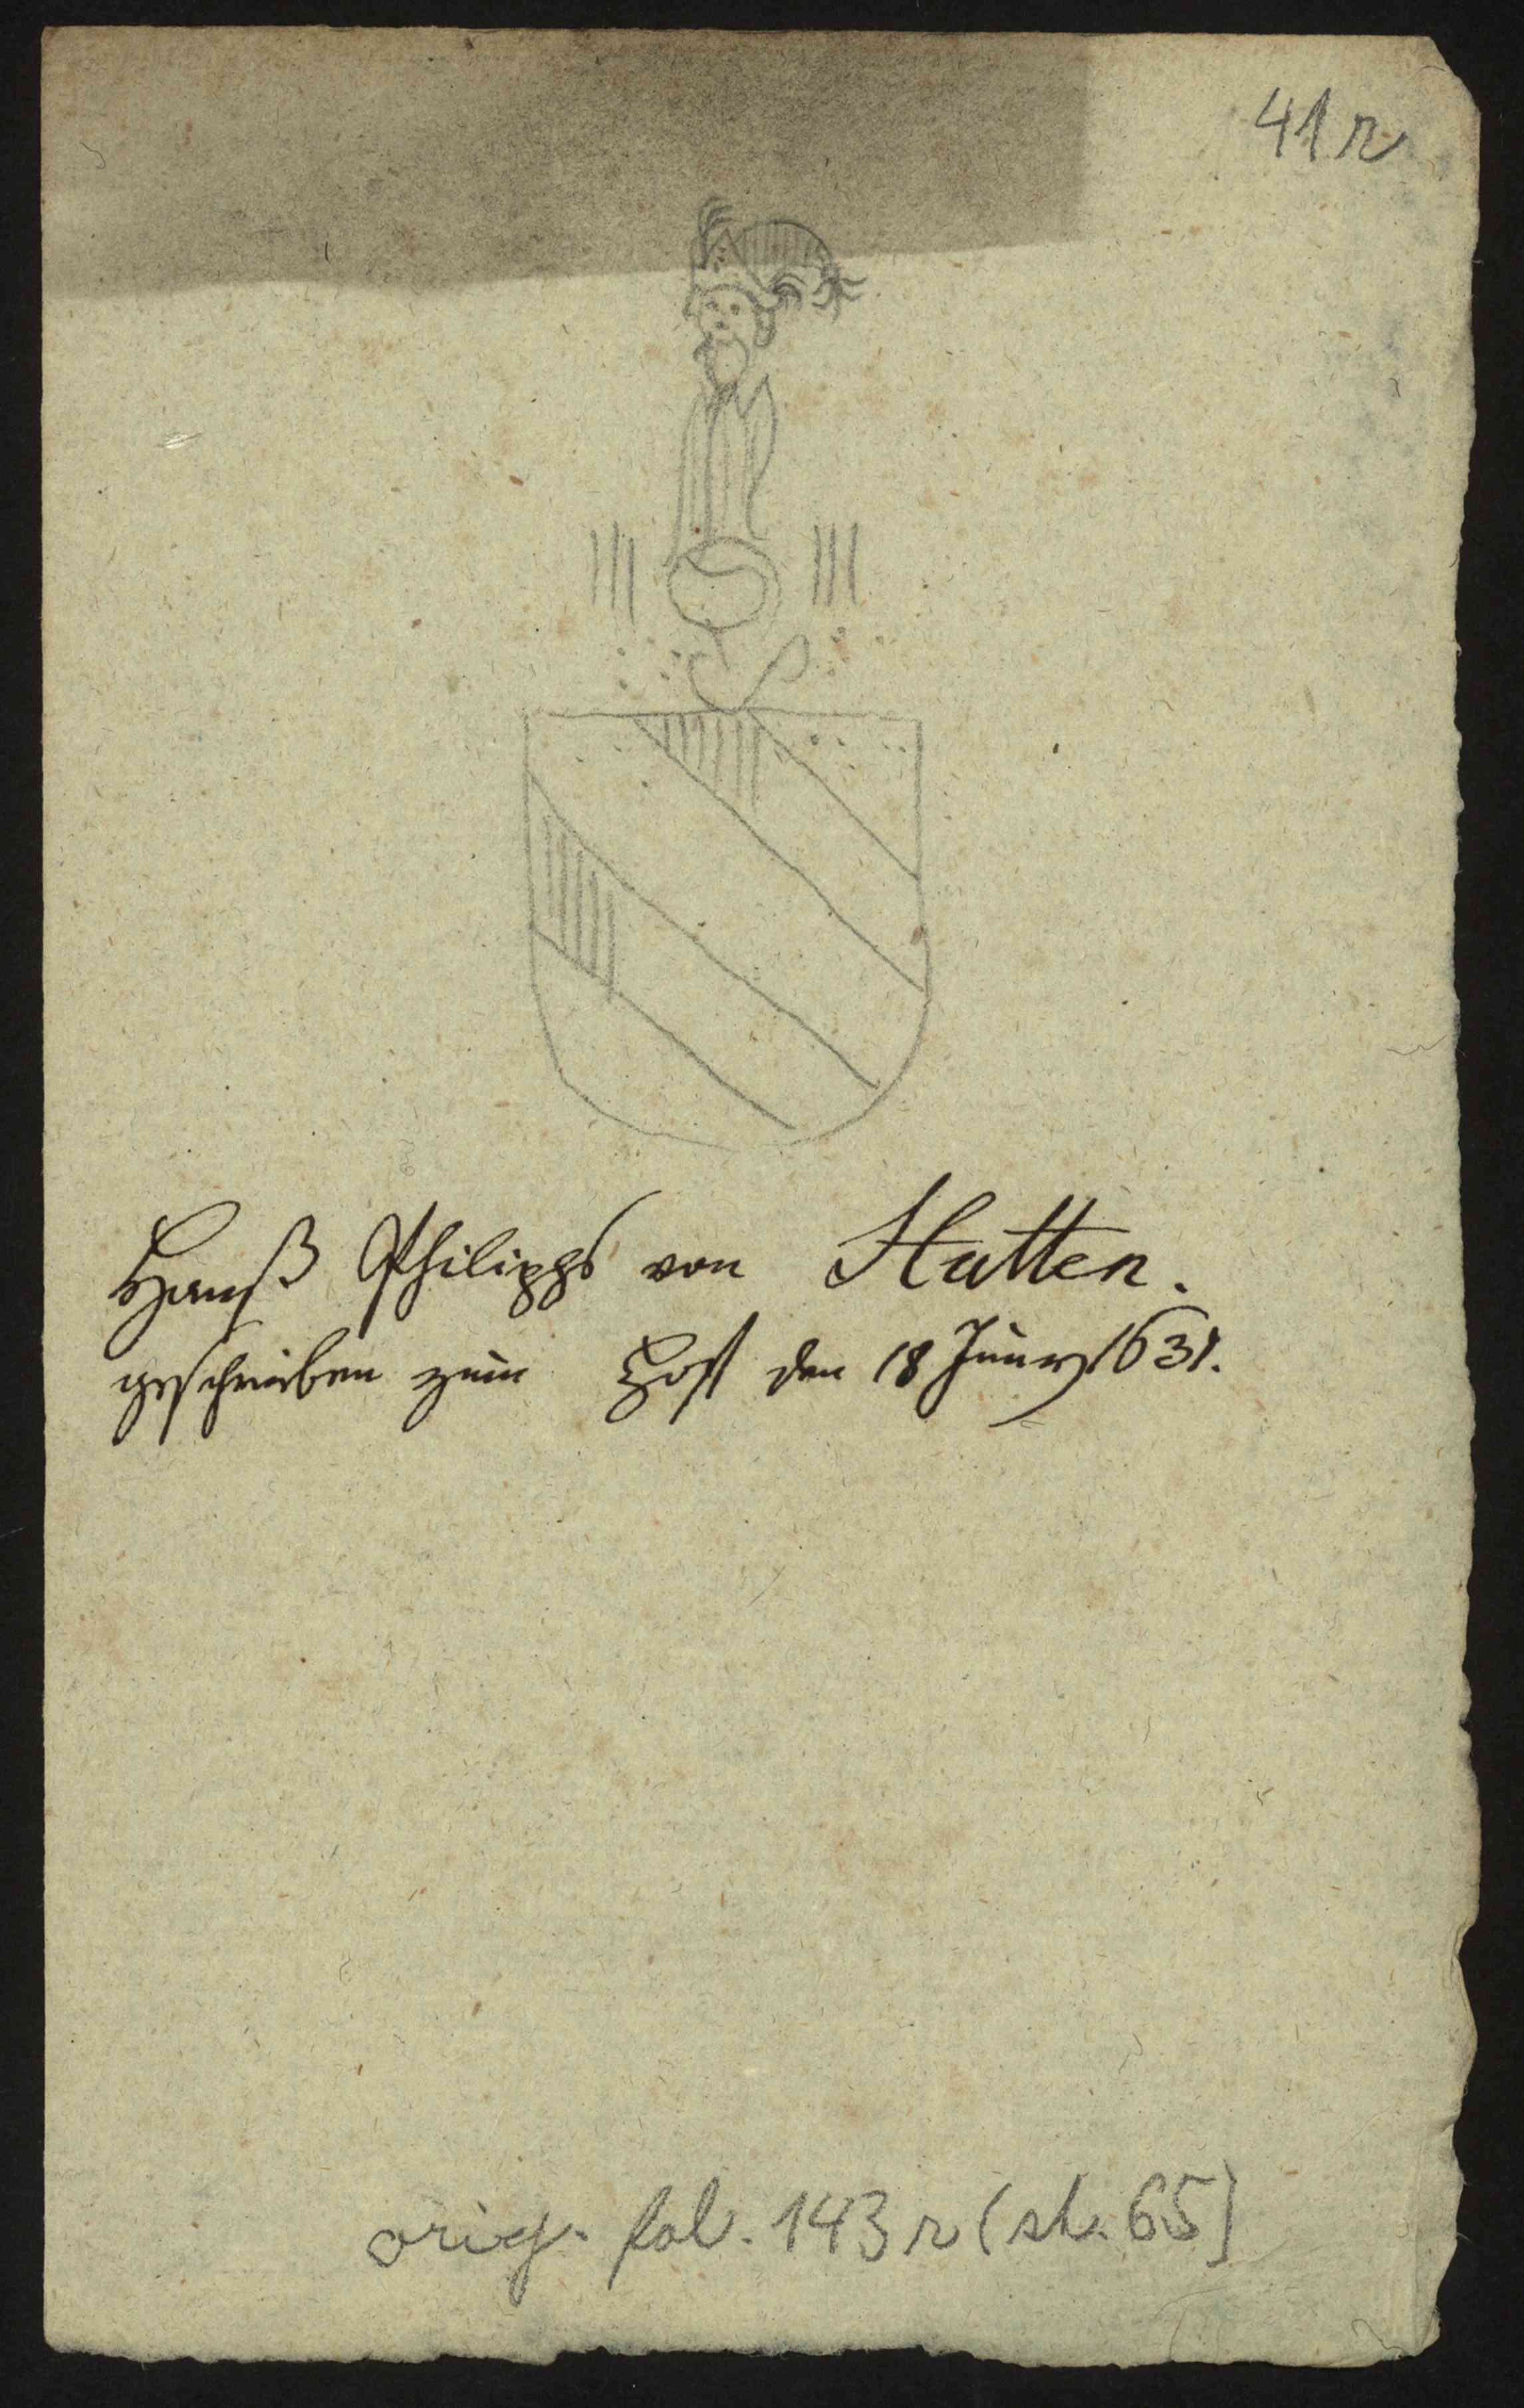 41r
Hanß Philipps von Hutten.
geschrieben zum Hoff den 18 Juny 1631.
orig. fol. 143r (st. 65)